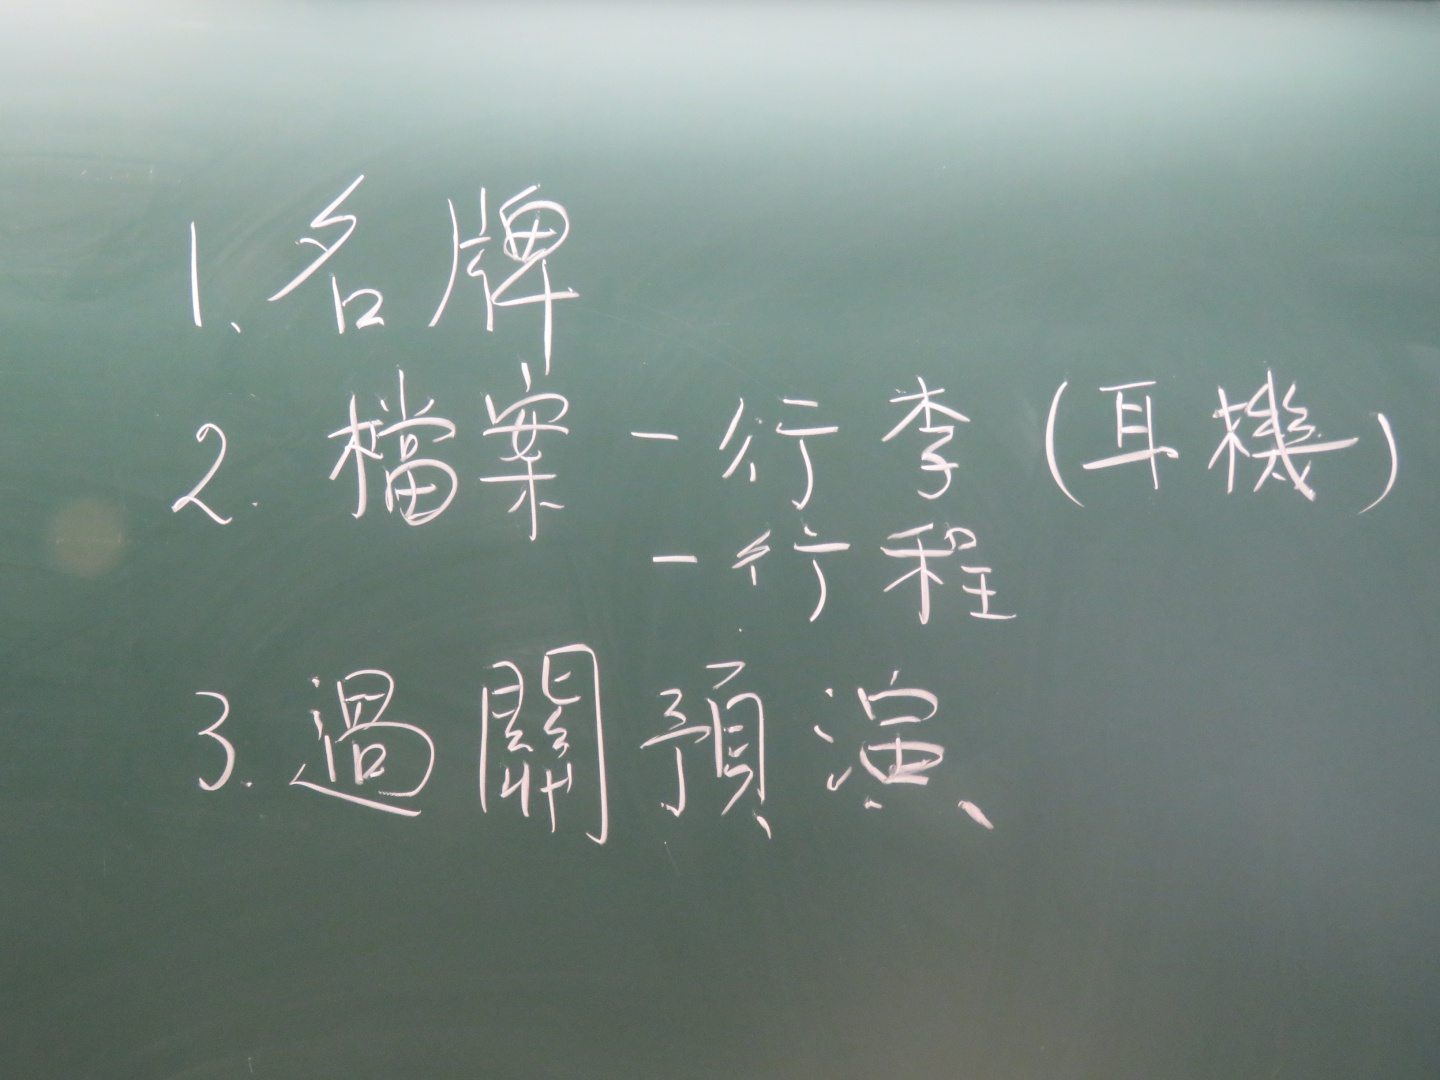 1. 名牌
2. 檔案 - 行李 (耳機)
- 行程
3. 過關預演